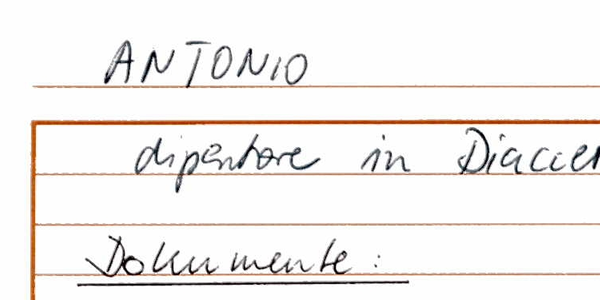 ANTONIO
dipentore in Diaccer
Dokumente: